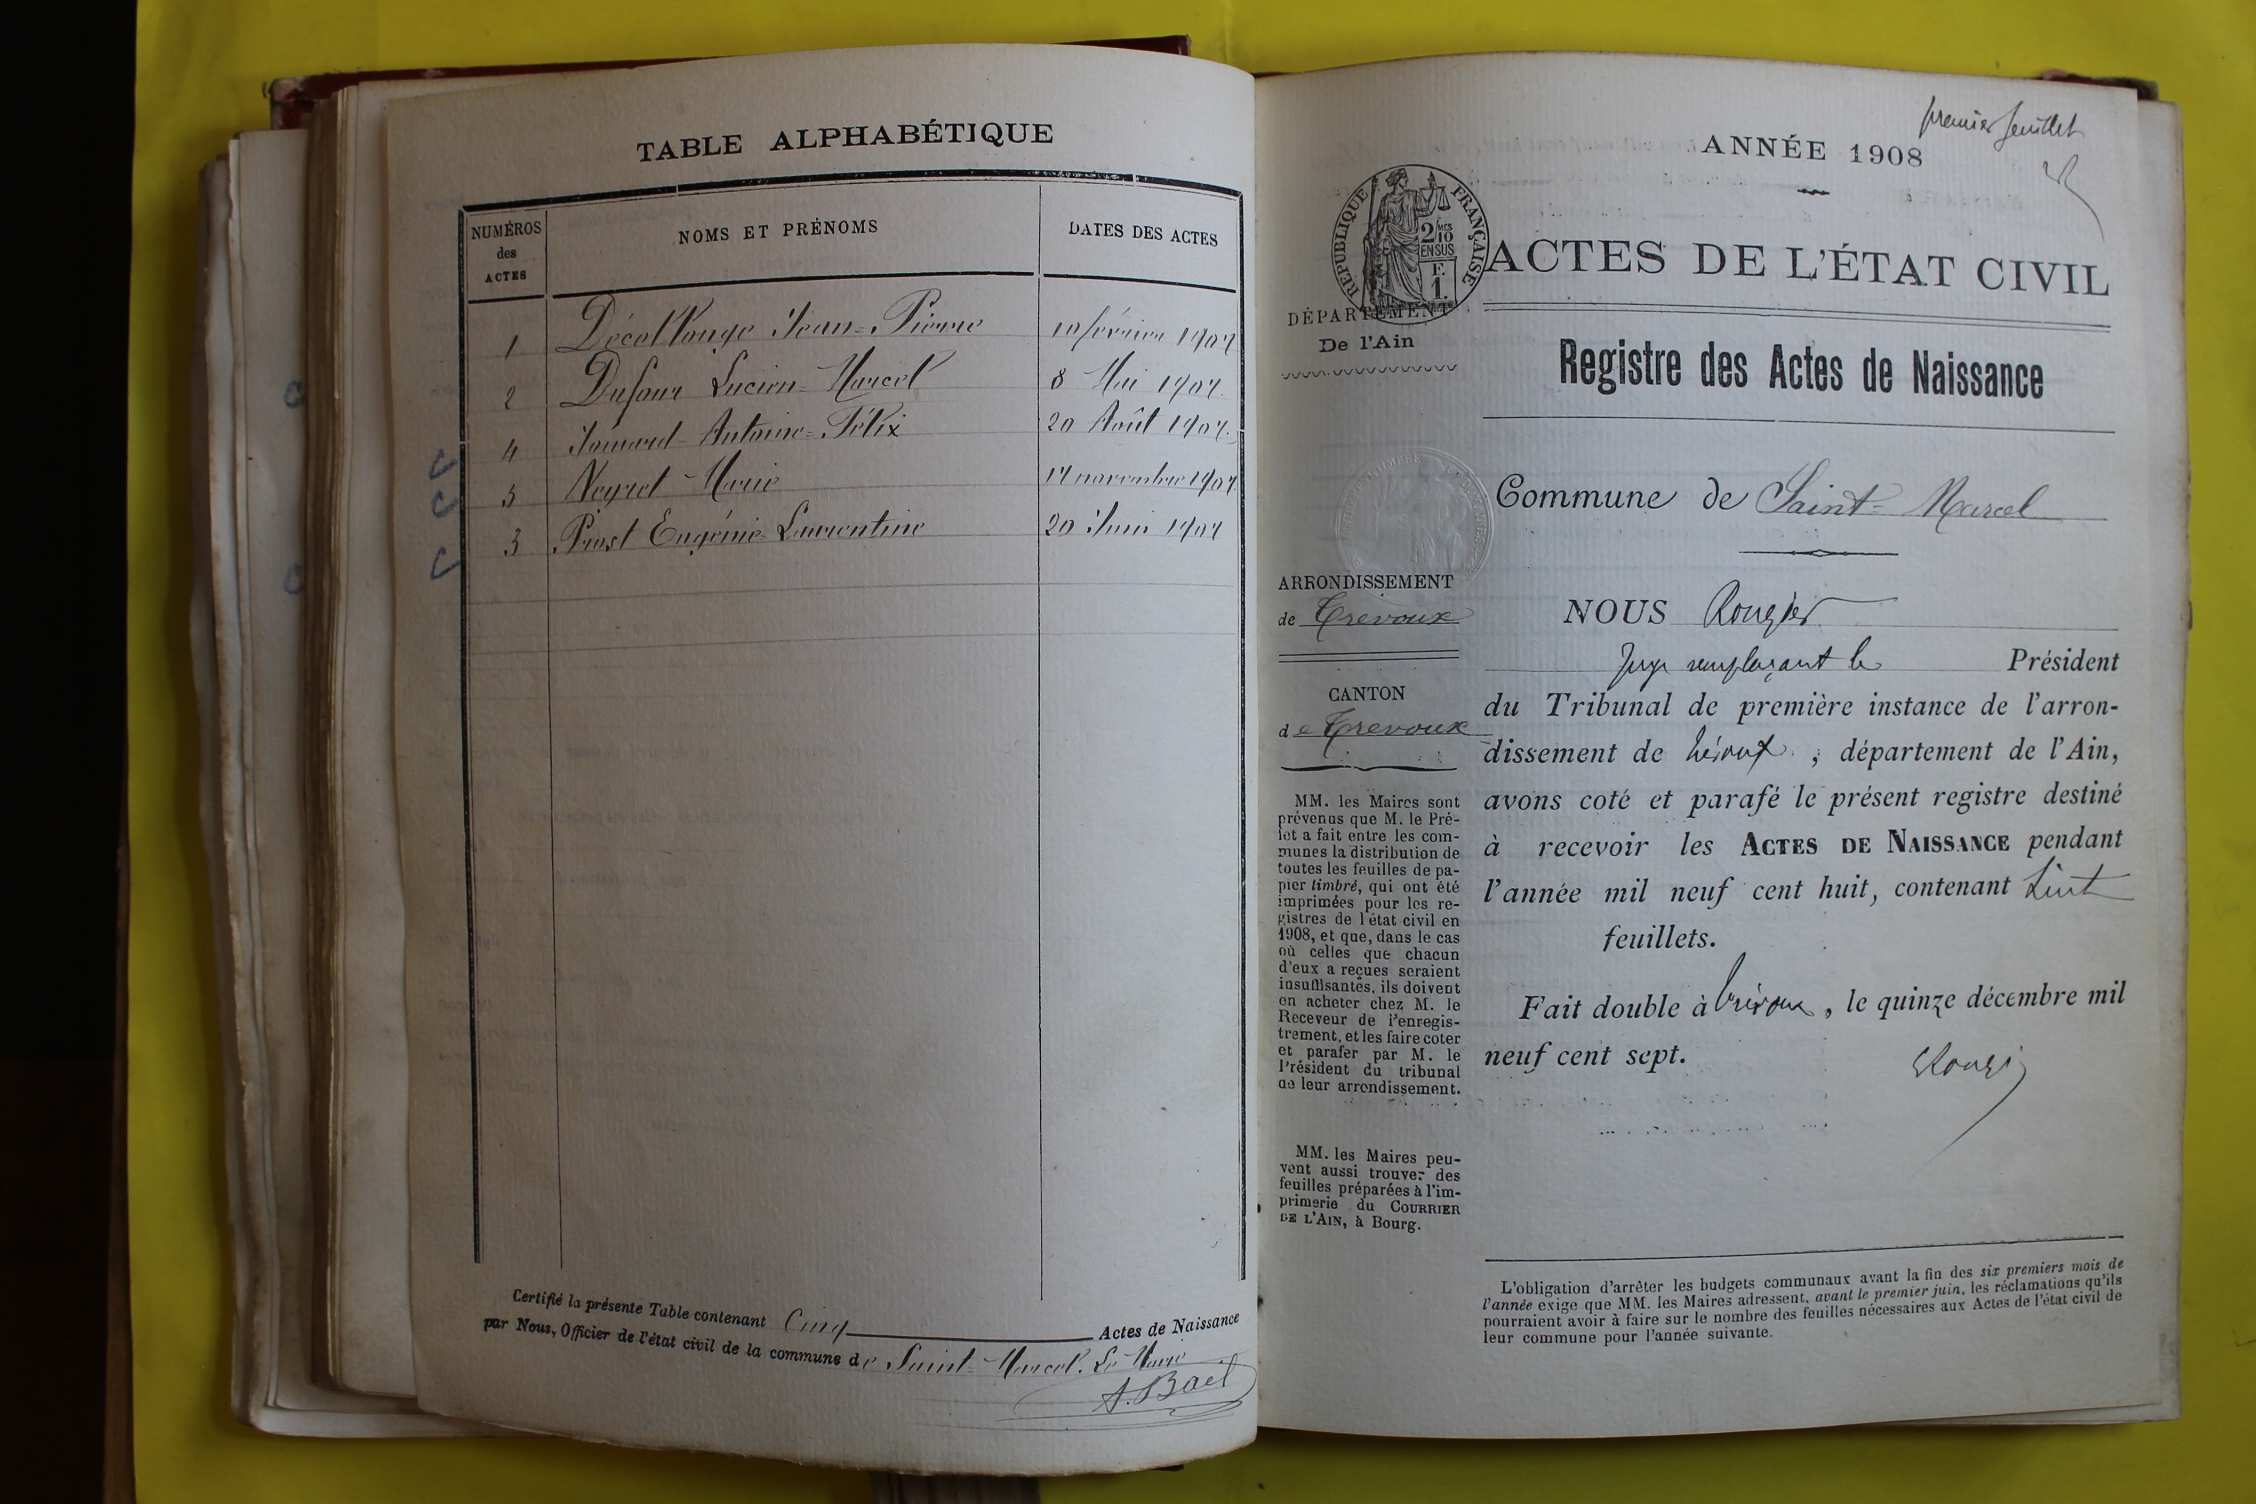 TABLE ALPHABÉTIQUE
NUMÉROS des ACTES
NOMS ET PRÉNOMS
DATES DES ACTES
1 Jean-Pierre 10 février 1907
2 Dufour Lucien-Marcel 8 Mai 1907.
4 Antoine-Félix 20 Août 1907.
5 Neyret Marie 17 novembre 1907
3 Prost Eugénie-Laurentine 20 Juin 1907
Certifié la présente Table contenant Cinq Actes de Naissance
par Nous, Officier de l'état civil de la commune de Saint-Marcel. Le Maire
A. Bael
premier feuillet
ANNÉE 1908
RÉPUBLIQUE FRANÇAISE
2/10 MES
EN SUS
F.
1.
ACTES DE L'ÉTAT CIVIL
DÉPARTEMENT
De l'Ain
Registre des Actes de Naissance
Commune de Saint-Marcel
ARRONDISSEMENT
de Trevoux
CANTON
de Trevoux
MM. les Maires sont
prévenus que M. le Pré-
fet a fait entre les com-
munes la distribution de
toutes les feuilles de pa-
pier timbré, qui ont été
imprimées pour les re-
gistres de l'état civil en
1908, et que, dans le cas
où celles que chacun
d'eux a reçues seraient
insuffisantes, ils doivent
en acheter chez M. le
Receveur de l'enregis-
trement, et les faire coter
et parafer par M. le
Président du tribunal
de leur arrondissement.
MM. les Maires peu-
vent aussi trouver des
feuilles préparées à l'im-
primerie du COURRIER
DE L'AIN, à Bourg.
NOUS Rougier
Juge remplaçant le Président
du Tribunal de première instance de l'arron-
dissement de Trévoux, département de l'Ain,
avons coté et parafé le présent registre destiné
à recevoir les ACTES DE NAISSANCE pendant
l'année mil neuf cent huit, contenant huit
feuillets.
Fait double à Trévoux, le quinze décembre mil
neuf cent sept.
Rougier
L'obligation d'arrêter les budgets communaux avant la fin des six premiers mois de
l'année exige que MM. les Maires adressent, avant le premier juin, les réclamations qu'ils
pourraient avoir à faire sur le nombre des feuilles nécessaires aux Actes de l'état civil de
leur commune pour l'année suivante.